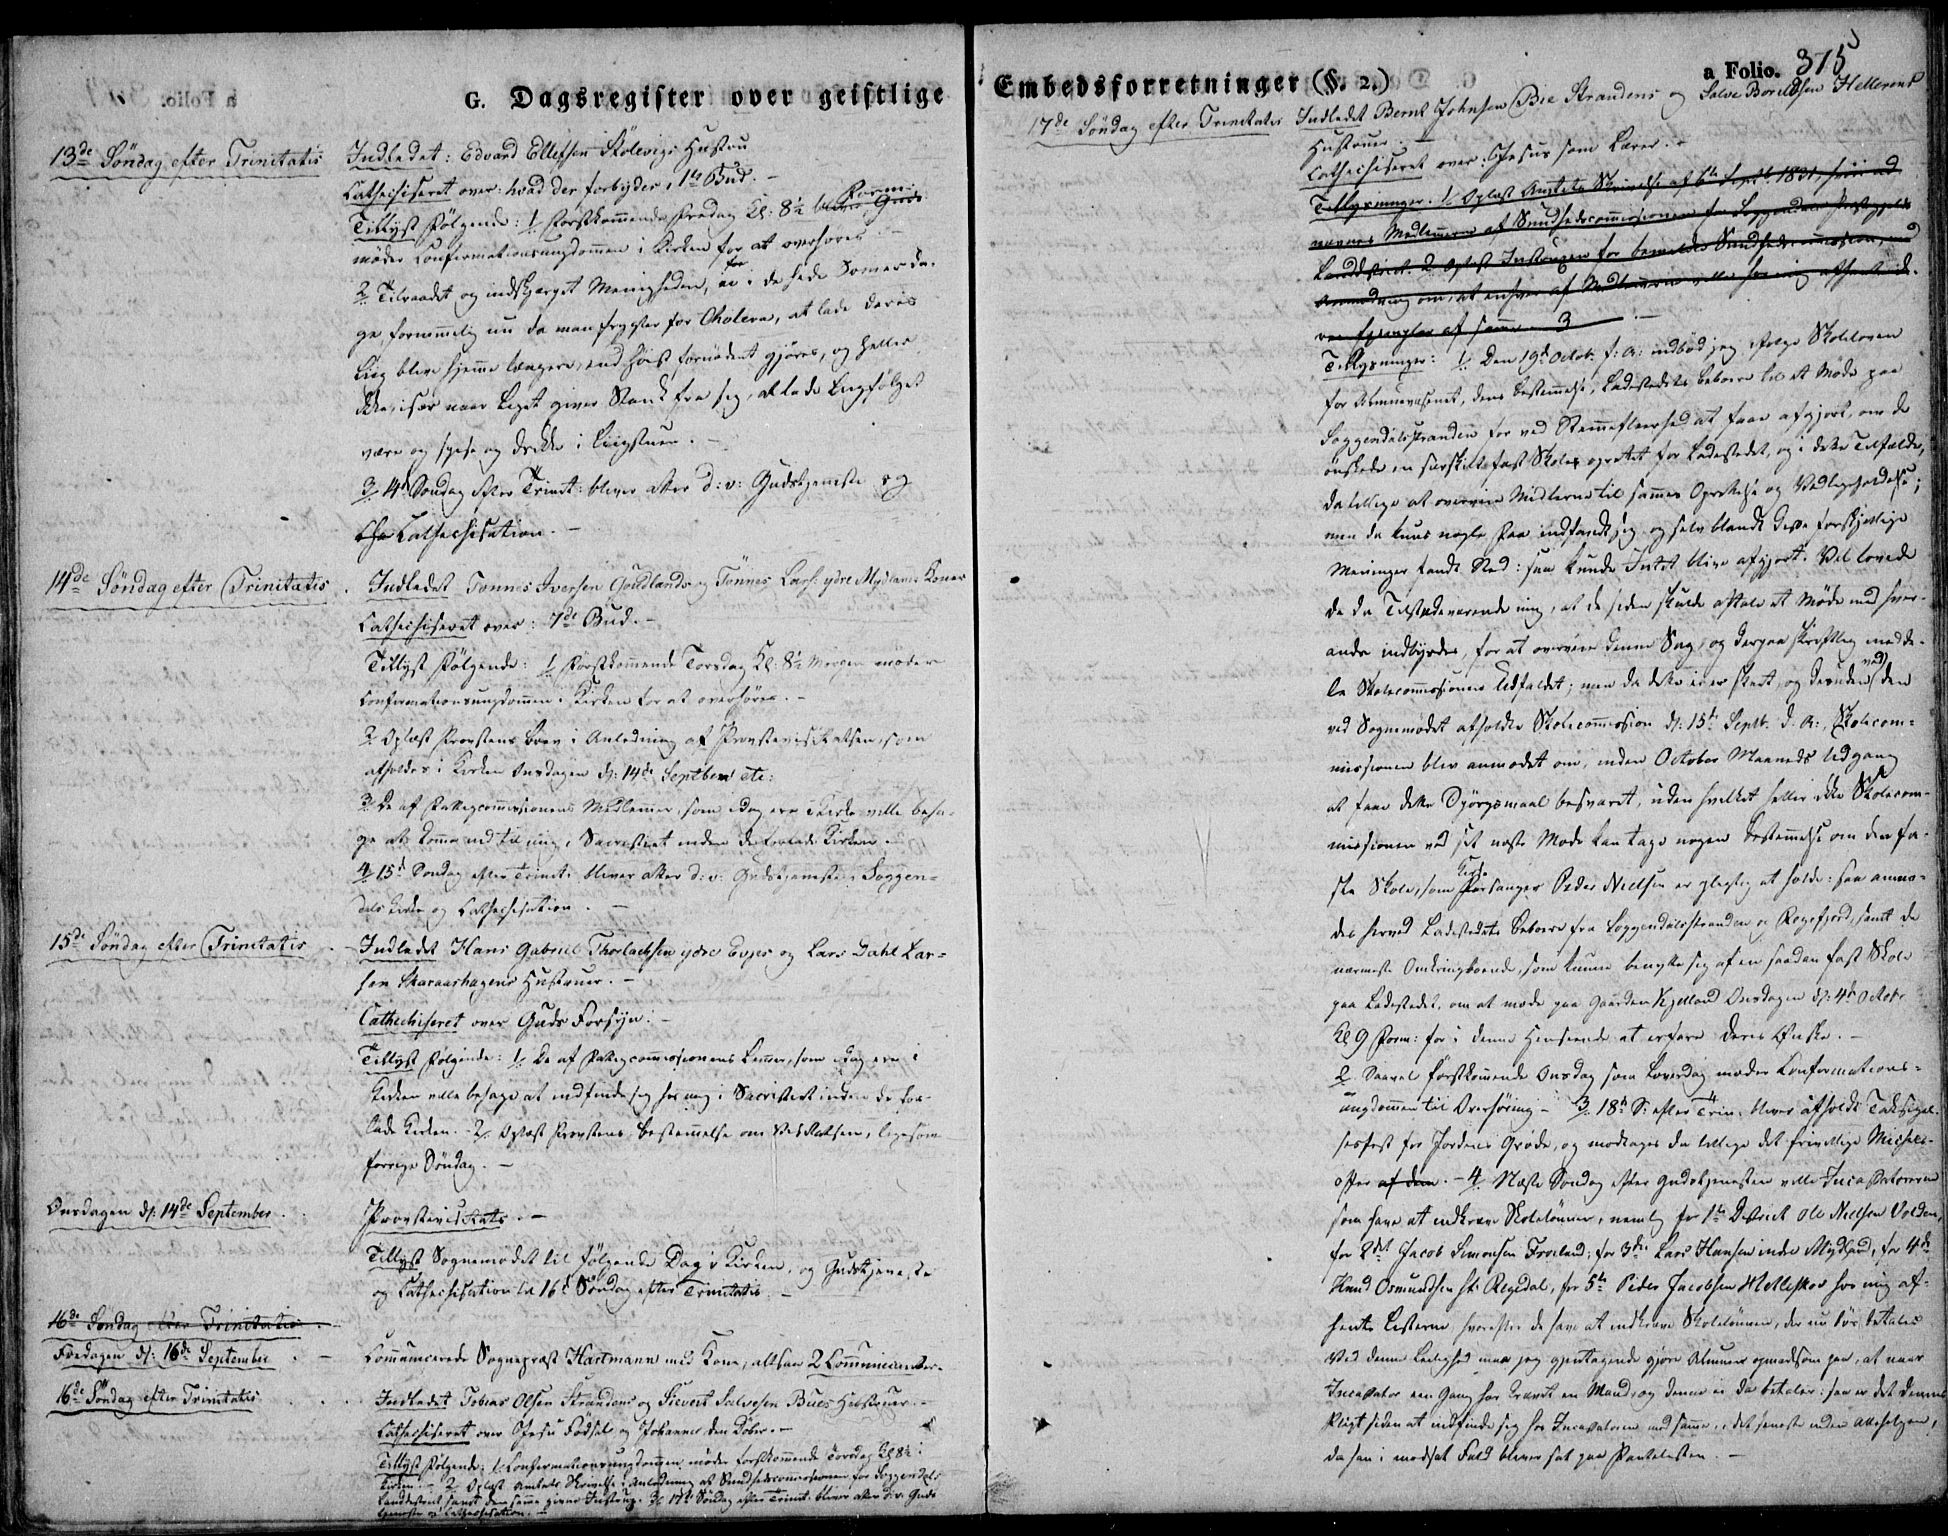 G. Dagsregister over geistlige
13de Søndag efter Trinitatis
Indledet: Edvard Ellefsen Stölevigs Hustru
Cathechiseret over: hvad der forbydes i 1ste Bud. -
Tillyst Følgende: 1/ Førstkommende Fredag Kl: 8½ Form:
møder Confirmationsungdommen i Kirken for at overhøres. -
2/ Tilraadet og indskjærpet Menigheden, ei i de hede Sommerda-
ge fornemmelig nu da man frygter for Cholera, at lade deres
Liig blive hjemme længere, end høist fornødent gjøres, og heller
ikke, især naar Liget giver Stank fra sig, at lade Liigfølget
være og spise og drikke i Liigstuen. -
3/ 14de Søndag efter Trinit: bliver atter d: v: Gudstjeneste og
Cathechisation. -
14de Søndag efter Trinitatis
Indledet Tønnes Iversen Gouldlands og Tønnes Lars: ydre Mydlands Koner
Cathechiseret over: 7de Bud. -
Tillyst Følgende: 1/ Førstkommende Torsdag Kl: 8½ Morgen møder
Confirmationsungdommen i Kirken for at overhøres. -
2 Oplæst Provstens Brev i Anledning af Provstevisitatsen, som
afholdes i Kirken Onsdagen d: 14de Septbr etc:
3/ De af Fattigcommissionens Medlemmer, som idag ere i Kirke ville beha-
ge at komme ind til mig i Sacristiet inden de forlade Kirken.
4/ 15de Søndag efter Trinit: bliver atter d: v: Gudstjeneste i Soggen-
dals Kirke og Cathechisation. -
15de Søndag efter Trinitatis
Indledet Hans Gabriel Thorlachsen ydre Evjes og Lars Dahl Lar-
sen Skaraashagens Hustruer. -
Cathechiseret over Guds Forsyn. -
Tillyst Følgende: 1/ De af Fattigcommissionens Lemmer, som idag ere i
Kirken ville behage at indfinde sig hos mig i Sacristiet inden de for-
lade Kirken. 2/ Oplæst Provstens Bestemmelse om Visitatsen, ligesom
forrige Søndag. -
Onsdagen d: 14de September
Provstevisitats. -
Tillyst Sognemødet til følgende Dag i Kirken, og Gudstjeneste
og Cathechisation til 16de Søndag efter Trinitatis. -
16de Søndag efter Trinitatis
Fredagen d: 16de September
Communicerede Sognepræst Hartmann med Kone, altsaa 2 Communicanter.
16de Søndag efter Trinitatis
Indledet Tobias Olsen Strandens og Sivert Salvesen Bues Hustruer. -
Cathechiseret over Jesu Fødsel og Johannes den Døber. -
Tillyst Følgende: 1/ Confirmationsungdommen møder førstkommende Torsdag Kl 8½ i
Kirken. - 2/ Oplæst Amtets Skrivelse i Anledning af Sundhedscommissionen for Soggendals
Landdistrict samt den samme givne Instrux. 3/ 17de Søndag efter Trinit: bliver atter d: v: Guds
tjeneste og Cathechisation. -
Embedsforretninger (§. 2.)
a Folio. 375
17de Søndag efter Trinitatis
Indledet Bernt Johnsen Bie Strandens og Salve Borildsen Hellerens
Hustruer. -
Cathechiseret over: Jesus som Lærer. -
Tillysninger. 1/ Oplæst Amtets Skrivelse af 6te Septbr 1831,
Medlemmerne af Sundhedscommissionen for Soggendals Præstegjelds
Landdistrict. 2 Oplæst Instruxen for bemeldte Sundhedscommission, med
Anmodning om, at enhver af Medlemmerne ville hos mig afhente
Exemplar af samme. 3
Tillysninger: 1/ Den 19de Octob. f: A: indbød jeg, ifølge Skoleloven
for Almuevæsenet, dens Bestemmelse, Ladestedets Beboere til et Møde paa
Soggendalsstranden for ved Stemmefleerhed at faae afgjort, om de
ønskede en særskilt fast Skole oprettet for Ladestedet, og i dette Tilfælde,
da tillige at overveie Midlerne til sammes Oprettelse og Vedligeholdelse;
men da kuns nogle Faa indfandt sig, og selv blandt disse forskjellige
Meninger fandt Sted: saa kunde Intet blive afgjort. Vel lovede
de da Tilstedeværende mig, at de siden skulde aftale et Møde med hver-
andre indbyrdes, for at overveie denne Sag, og derpaa skriftlig medde-
le Skolecommissionen Udfaldet; men da dette ei er skeet, og desuden ved den
ved Sognemødet afholdte Skolecommission d: 15de Septb. d. A: Skolecom-
missionen blev anmodet om, inden October Maaneds Udgang
at faae dette Spørgsmaal besvaret, uden hvilket heller ikke Skolecom-
missionen ved sit næste Møde kan tage nogen Bestemmelse om den fa-
ste Skole, som Kirke-Forsanger Peder Nielsen er pligtig at holde: saa anmo-
des herved Ladestedets Beboere fra Soggendalsstranden og Rægefjord, samt de
nærmeste Omkringboende, som kunne benytte sig af en saadan fast Skole
paa Ladestedet, om at møde paa Gaarden Kjelland Onsdagen d: 4de Octobr
Kl 9 Form: for i denne Henseende at erfare deres Ønske. -
2 Saavel førstkommende Onsdag som Løverdag møder Confirmations-
ungdommen til Overhøring - 3. 18de S: efter Trin. bliver afholdt Taksigel-
sesfest for Jordens Grøde, og modtages da tillige det frivillige Michels-
offer af dem. - 4/ Næste Søndag efter Gudstjenesten ville Incassatorerne
som have at indkræve Skolelønnen, nemlig for 1ste District Ole Nielsen Volden,
for 2det Jacob Simonsen Frøiland; for 3die Lars Hansen indre Mydland, for 4de
Knud Osmundsen st: Regedal, for 5te Peder Jacobsen Helleskor hos mig af-
hente Listerne, hvorefter de have at indkræve Skolelønnen, der nu bør betales
Ved denne Leilighed maa jeg gjentagende gjøre Almuen opmærksom paa, at naar
Incassator een Gang har krævet en Mand, og denne ei da betaler: saa er det dennes
Pligt siden at indfinde sig hos Incassatoren med samme,
da han i modsat Fald bliver sat paa Pantelisten. -